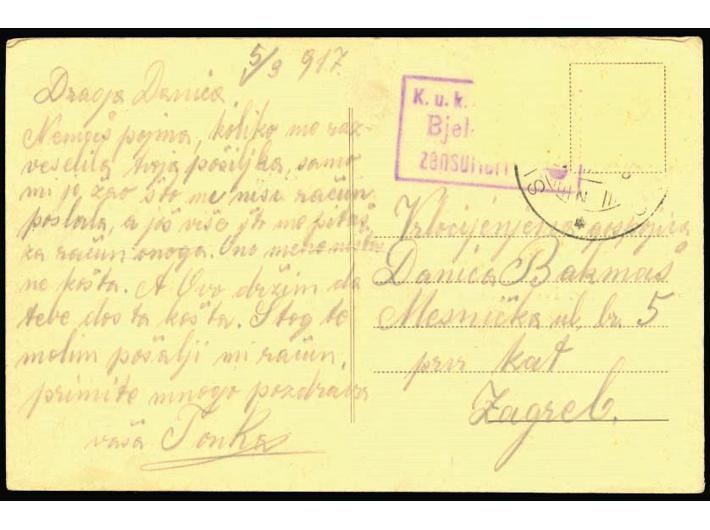 5/9 917.
Draga Danica
Nemaš pojma, koliko me raz-
veselila tvoja pošiljka, samo
mi je žao što mi nisi račun
poslala, a još više što me pitaš
za račun onoga. Ono mene
ne košta. A Ovo držim da
tebe dosta košta. Stog te
molim pošalji mi račun.
primite mnogo pozdrava
vaša Tonka
K. u. k.
Bjel
zensuriert
Danica Bakmaš
Mesnička ul. br. 5
prvi kat
Zagreb.